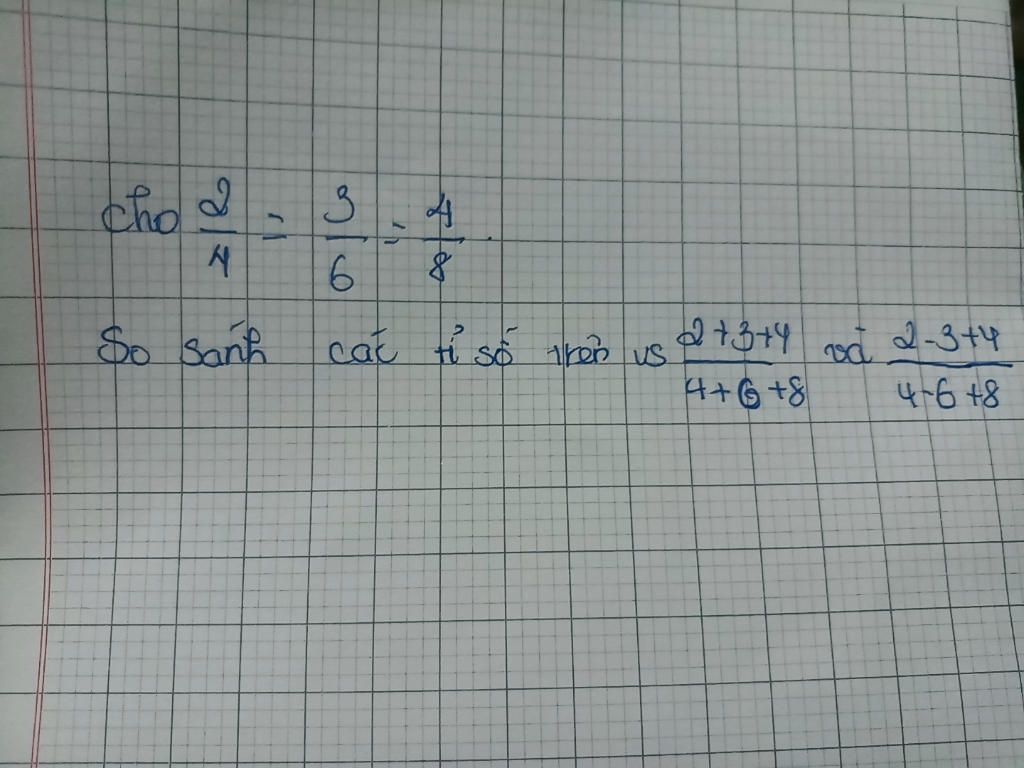 Cho 2/4 = 3/6 = 4/8.
So sánh các tỉ số trên vs (2+3+4)/(4+6+8) và (2-3+4)/(4-6+8)